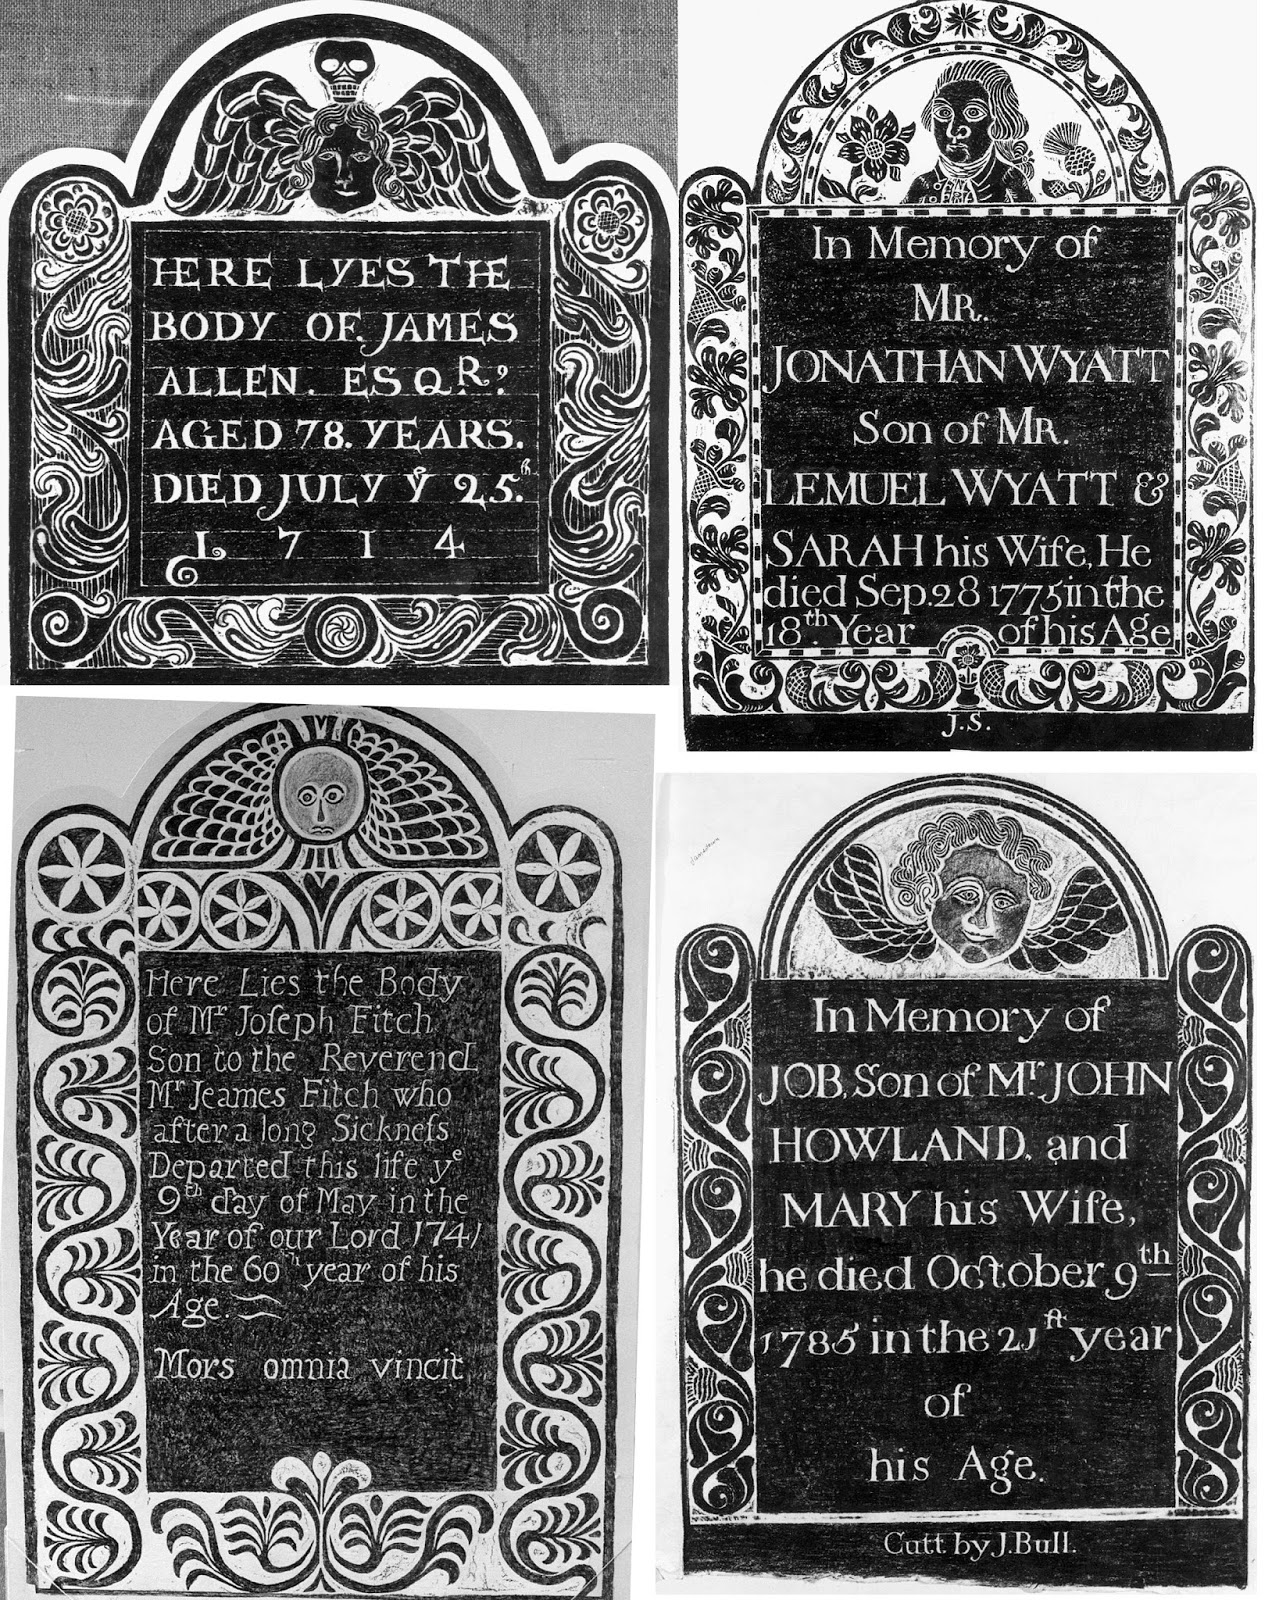 HERE LYES THE
BODY OF. JAMES
ALLEN. ESQR.
AGED 78. YEARS.
DIED JULY yе 25.th
1 7 1 4
In Memory of
MR.
JONATHAN WYATT
Son of MR.
LEMUEL WYATT &
SARAH his Wife, He
died Sep. 28 1775 in the
18th. Year of his Age
J.S.
Here Lies the Body
of Mr Joſeph Fitch
Son to the Reverend
Mr Jeames Fitch who
after a long Sickneſs
Departed this life ye
9th day of May in the
Year of our Lord 1741
in the 60th year of his
Age.
Mors omnia vincit
Jamestown
In Memory of
JOB, Son of Mr. JOHN
HOWLAND, and
MARY his Wife,
he died October 9th
1785 in the 21ſt year
of
his Age.
Cutt by J. Bull.